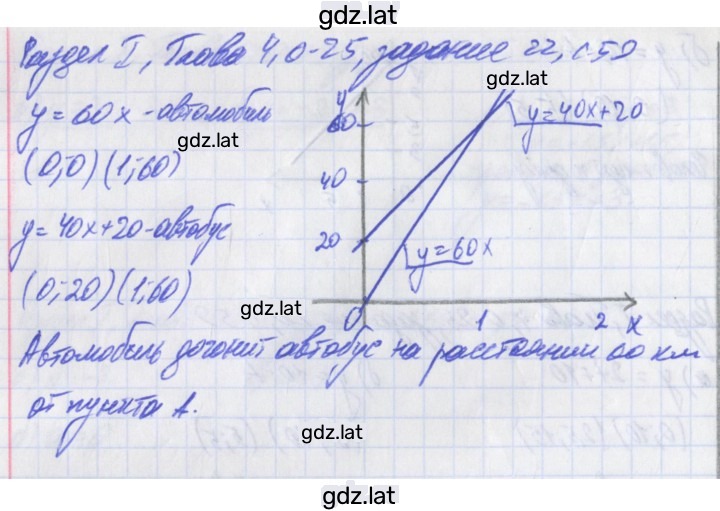 gdz.lat
Раздел I, Глава 4, 0-25, задание 22, с.52
gdz.lat
y=60x-автомобиль
gdz.lat
(0;0)(1;60)
y=40x+20-автобус
(0;20)(1;60)
gdz.lat
y
60
40
20
0
1
2
x
y=40x+20
y=60x
Автомобиль догонит автобус на расстоянии 60 км
от пункта А.
gdz.lat
gdz.lat